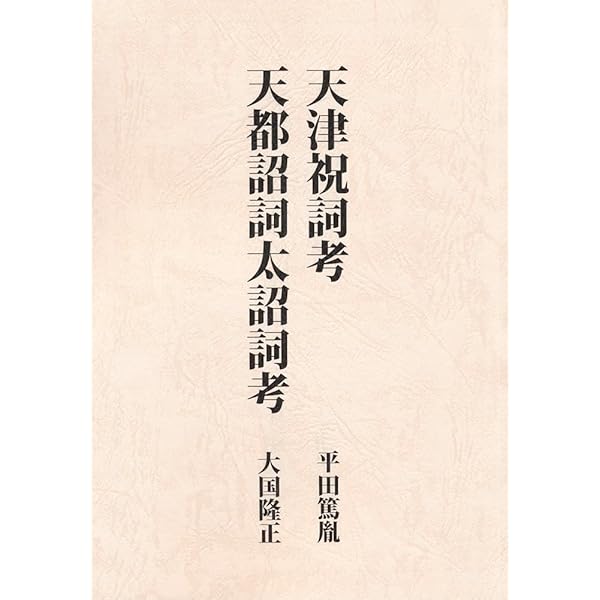 天津祝詞考
平田篤胤
天都詔詞太詔詞考
大国隆正